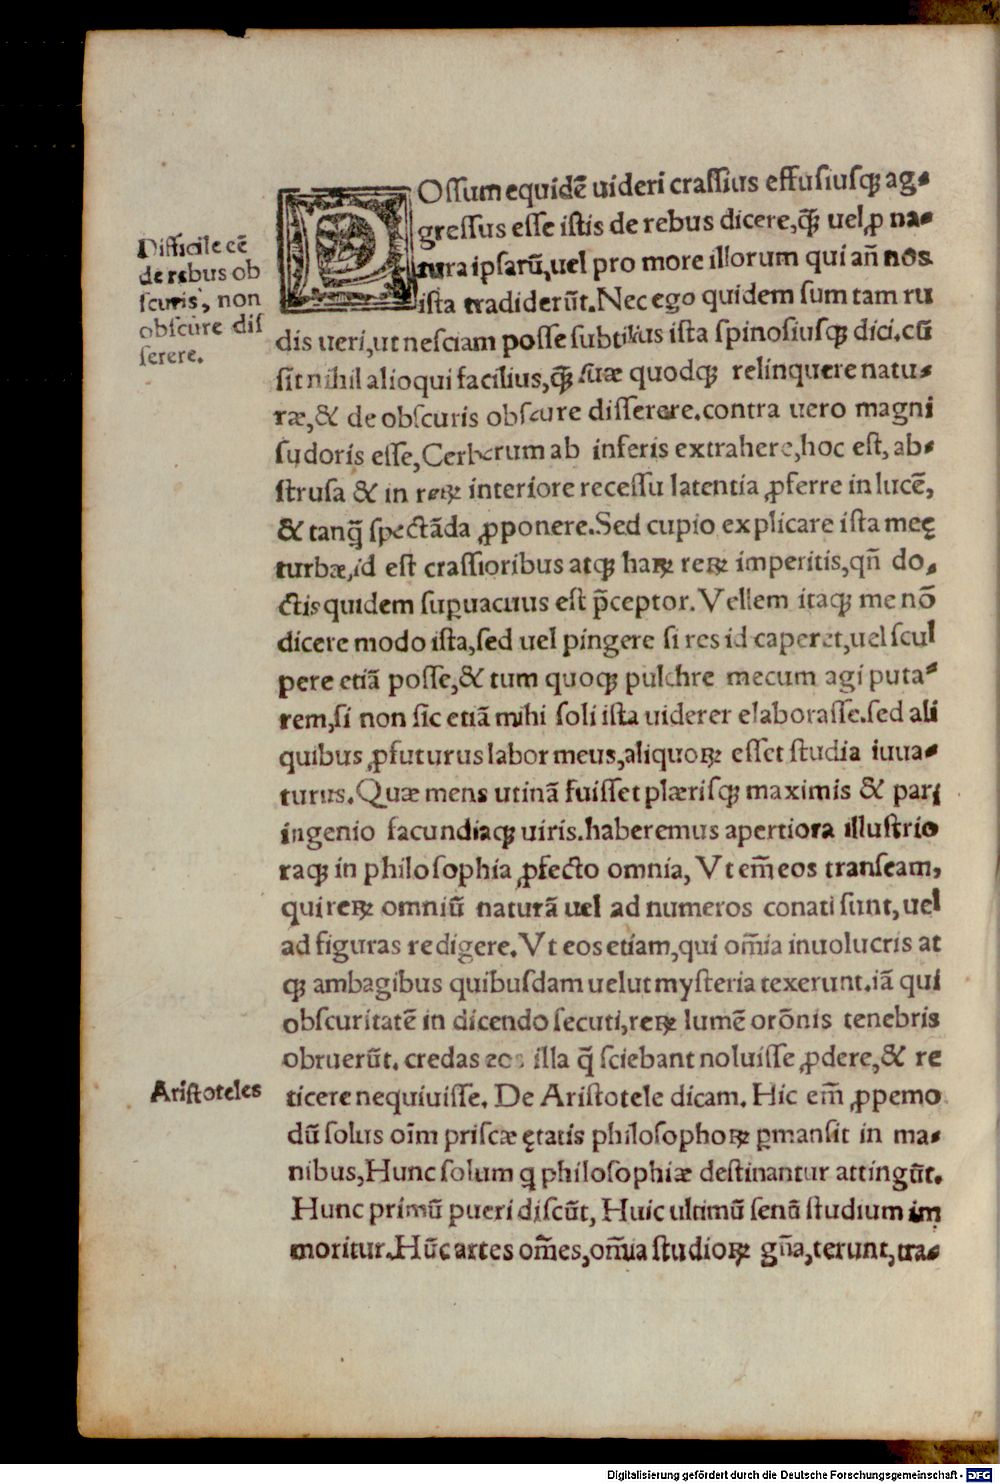 Difficile cē
de rebus ob
ſcuris, non
obſcure diſ
ſerere.
POſſum equidē uideri craſſius effuſiuſqꝫ ag-
greſſus eſſe iſtis de rebus dicere, q̄ꝫ uel ꝓ na-
tura ipſarū, uel pro more illorum qui an̄ nos
iſta tradiderūt. Nec ego quidem ſum tam ru
dis ueri, ut neſciam poſſe ſubtilius iſta ſpinoſiuſqꝫ dici. cū
ſit nihil alioqui facilius, q̄ꝫ ſuæ quodqꝫ relinquere natu-
ræ, & de obſcuris obſcure diſſerere. contra uero magni
ſudoris eſſe, Cerberum ab inferis extrahere, hoc eſt, ab-
ſtruſa & in reꝝ interiore receſſu latentia ꝓferre in lucē,
& tanq̄ ſpectāda ꝓponere. Sed cupio explicare iſta meę
turbæ, id eſt craſſioribus atqꝫ haꝝ reꝝ imperitis, qn̄ do-
ctis quidem ſuꝑuacuus eſt p̄ceptor. Vellem itaqꝫ me nō
dicere modo iſta, ſed uel pingere ſi res id caperet, uel ſcul
pere etiā poſſe, & tum quoqꝫ pulchre mecum agi puta-
rem, ſi non ſic etiā mihi ſoli iſta uiderer elaboraſſe. ſed ali
quibus ꝓfuturus labor meus, aliquoꝝ eſſet ſtudia iuua-
turus. Quæ mens utinā fuiſſet plæriſqꝫ maximis & pari
ingenio facundiaqꝫ uiris. haberemus apertiora illuſtrio
raqꝫ in philoſophia ꝓfecto omnia, Vt em̄ eos tranſeam,
qui reꝝ omniū naturā uel ad numeros conati ſunt, uel
ad figuras redigere. Vt eos etiam, qui om̄ia inuolucris at
qꝫ ambagibus quibuſdam uelut myſteria texerunt. iā qui
obſcuritatē in dicendo ſecuti, reꝝ lumē orōnis tenebris
obruerūt. credas eos illa q̄ ſciebant noluiſſe ꝓdere, & re
ticere nequiuiſſe. De Ariſtotele dicam. Hic em̄ ꝓpemo
dū ſolus oīm priſcæ ętatis philoſophoꝝ ꝑmanſit in ma-
nibus, Hunc ſolum q philoſophiæ deſtinantur attingūt.
Hunc primū pueri diſcūt, Huic ultimū ſenū ſtudium im
moritur. Hūc artes om̄es, om̄ia ſtudioꝝ gn̄a, terunt, tra-
Ariſtoteles
Digitalisierung gefördert durch die Deutsche Forschungsgemeinschaft - DFG